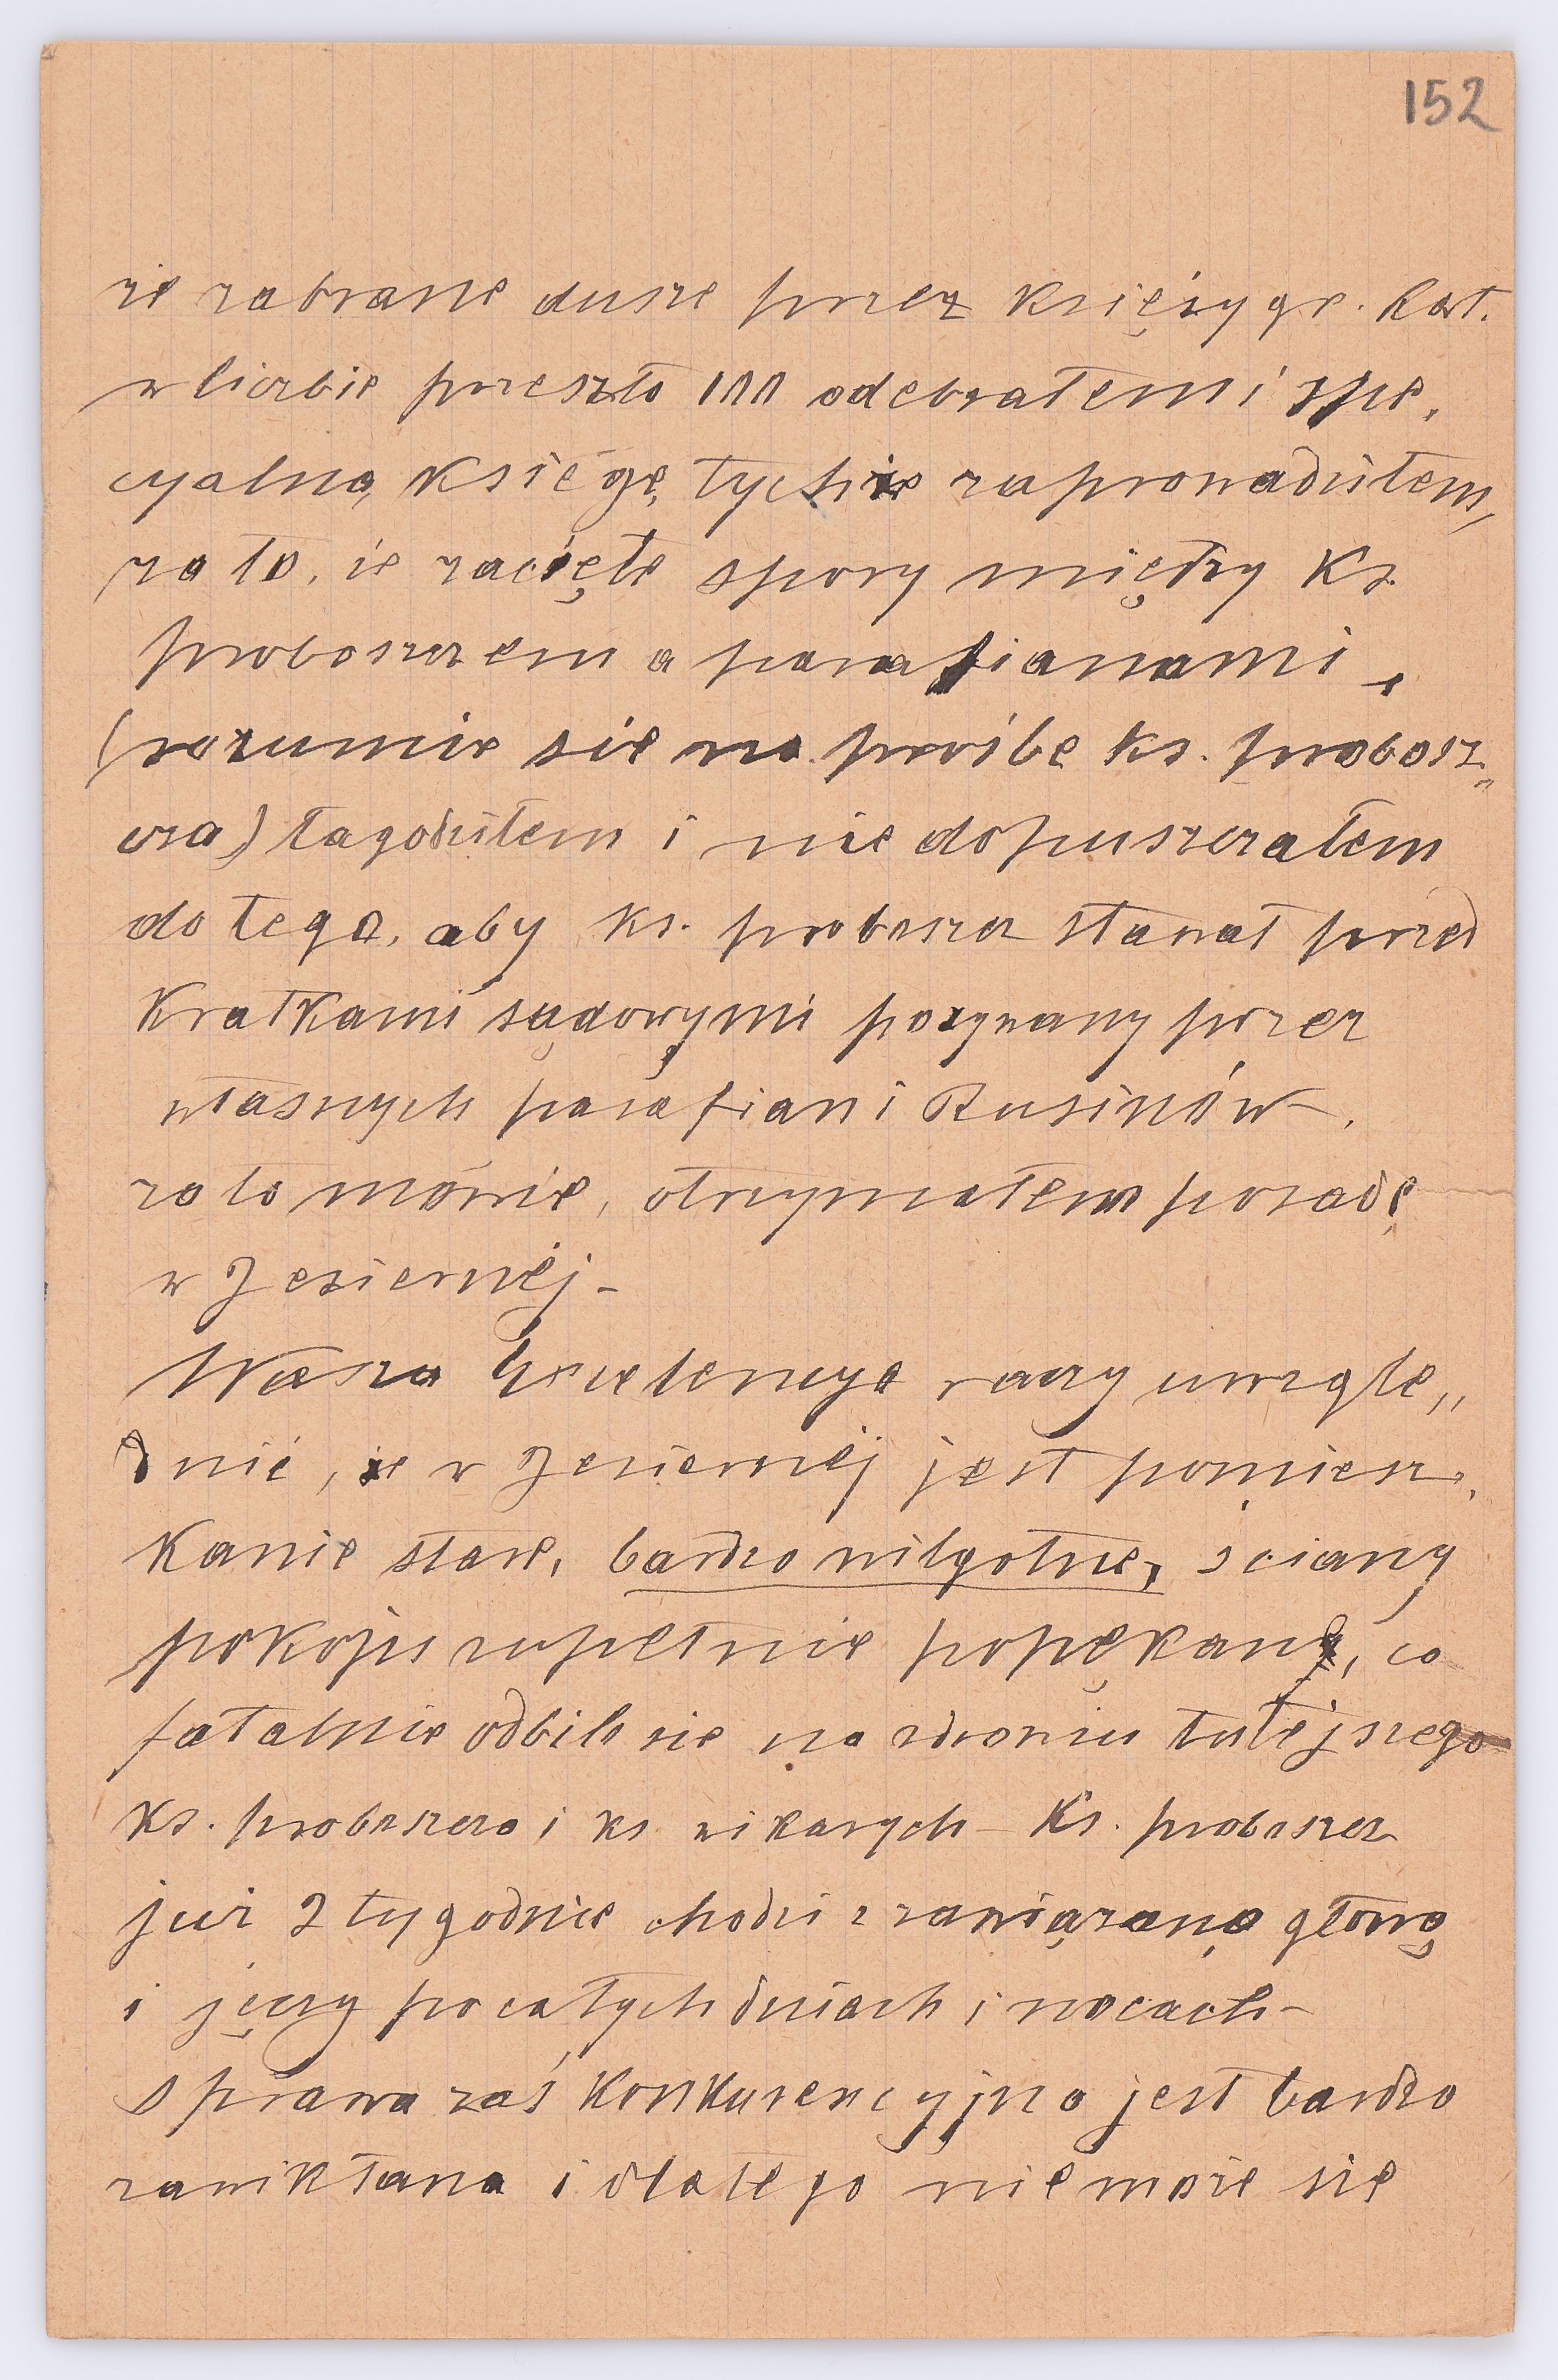 152
że zabrane dusze przez księży gr. kat.
w liczbie przeszło 100 odebrałem i spe,
cyalną księgę tychże zaprowadziłem,
za to, że zacięte spory między ks.
proboszczem a parafianami,
(rozumie się na prośbę ks. probosz„
cza) łagodziłem i nie dopuszczałem
do tego, aby ks. proboszcz stanął przed
kratkami sądowymi pozywany przez
własnych parafian i Rusinów.
za to mówię, otrzymałem posadę
w Jeziernéj –
Wasza Excelencya raczy uwzglę„
dnić, że w Jeziernéj jest pomiesz,
kanie stare, bardzo wilgotne, ściany
pokoju zupełnie popękane, co
fatalnie odbiło się na zdrowiu tutéjszego
ks. proboszcza i ks. wikarych – Ks. proboszcz
już 2 tygodnie chodzi z zawiązaną głową
i jęczy po całych dniach i nocach –
sprawa zaś konkurencyjna jest bardzo
zawikłana i dlatego nie może się